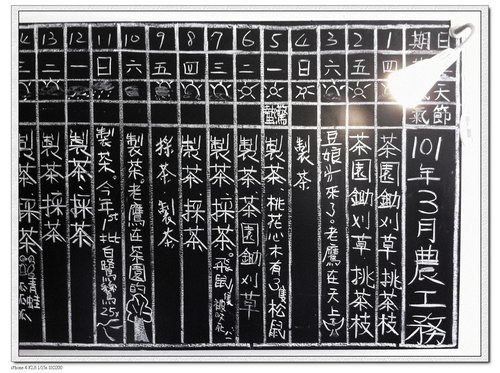 日期
天
節氣
101年3月農工務
1 四 茶園鋤刈草.挑茶枝
2 五 茶園鋤刈草.挑茶枝
3 六 豆娘出來了。老鷹在天上
4 日 製茶
5 一 驚蟄 製茶 桃花心木有3隻松鼠
6 二 製茶 茶園鋤刈草
7 三 製茶.採茶。飛鼠
8 四 製茶 採茶
9 五 採茶 製茶
10 六 製茶老鷹在茶園的
11 日 製茶今年1st批白鷺鷥25
12 一 製茶.採茶
13 二 製茶 採茶
14 三 製茶.採茶 青蛙